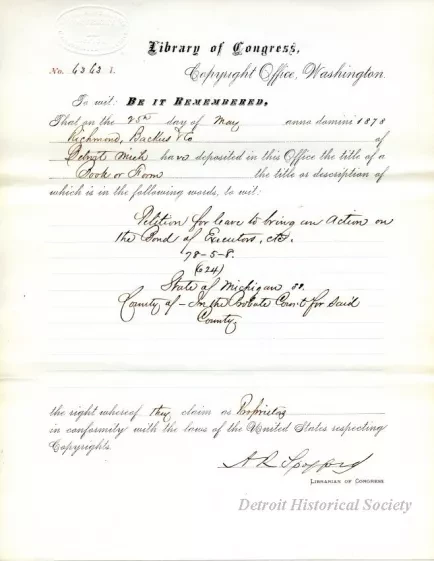 Library of Congress,
No. 6363 I.
Copyright Office, Washington.
To wit: BE IT REMEMBERED,
That on the 25th day of May anno domini 1878
Richmond, Backus & Co of
Detroit Mich have deposited in this Office the title of a
Book or Form the title or description of
which is in the following words, to wit:
Petition for leave to bring an Action on
the Bond of Executors, etc.
78-5-8.
(624)
State of Michigan ss.
County of - In the Probate Court for said
County
the right whereof they claim as Proprietors
in conformity with the laws of the United States respecting
Copyrights.
A R Spofford
LIBRARIAN OF CONGRESS
Detroit Historical Society